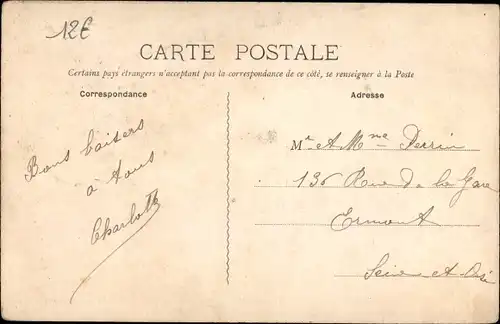 12€
CARTE POSTALE
Certains pays étrangers n'acceptant pas la correspondance de ce côté, se renseigner à la Poste
Correspondance
Adresse
Bons baisers
à tous
Charlotte
Mr et Mme Perrin
136 Rue de la Gare
Ermont
Seine et Oise